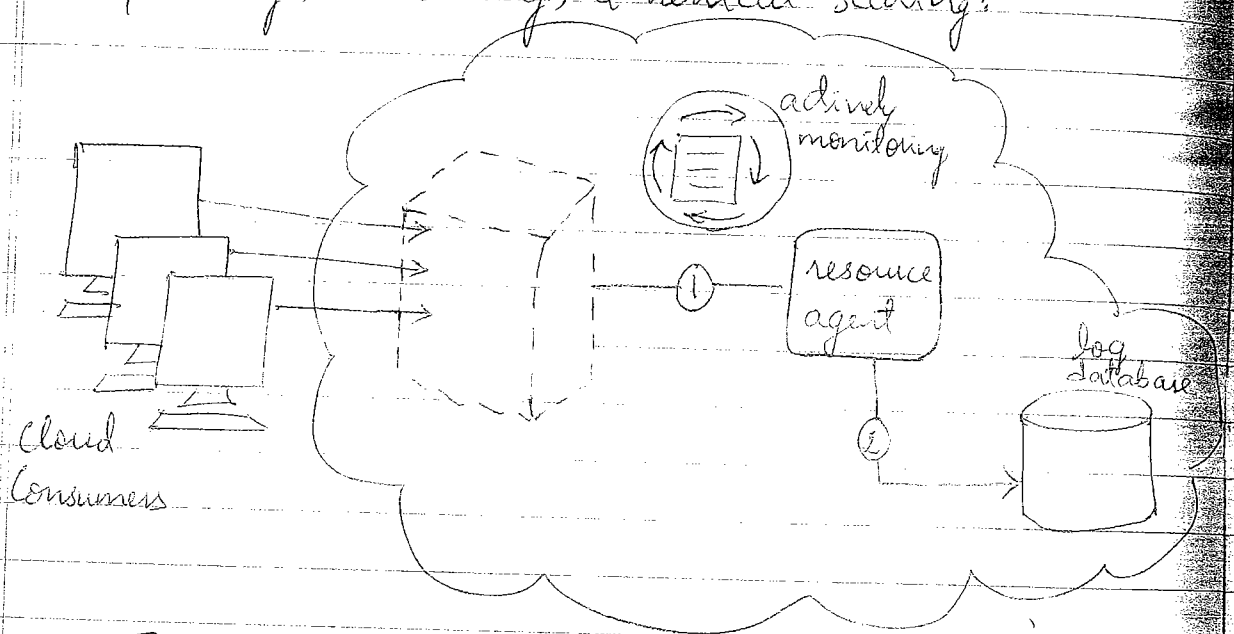 actively
monitoring
1
resource
agent
2
log
database
Cloud
Consumers